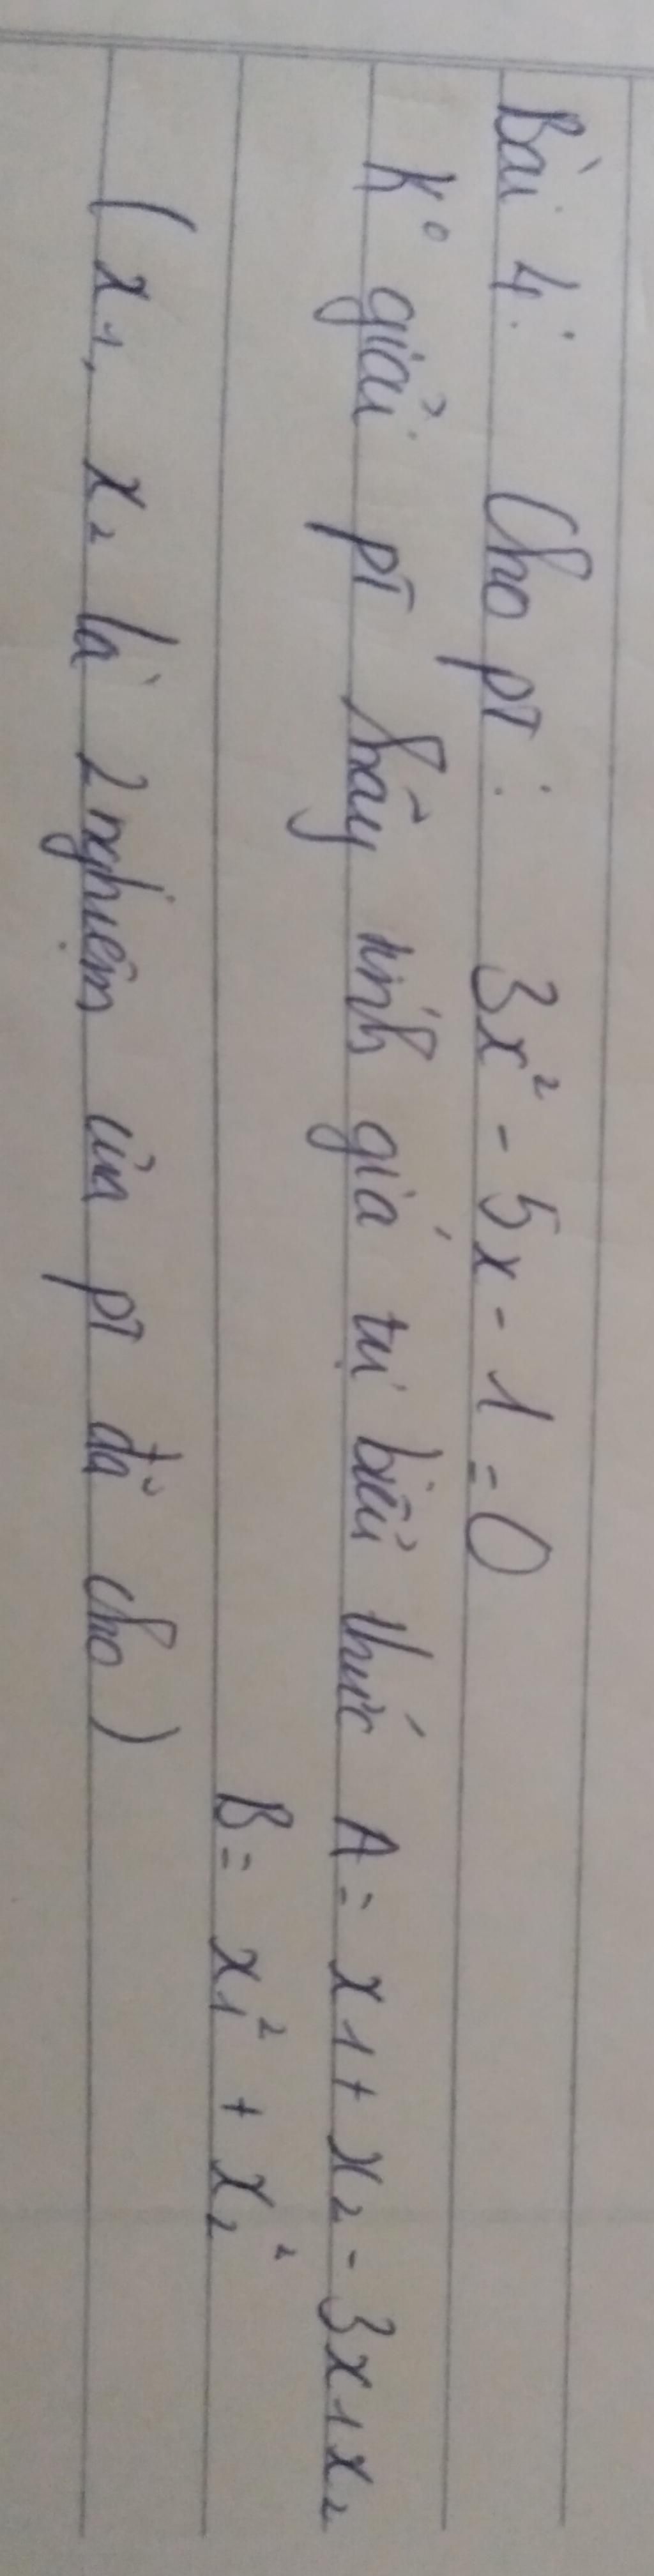 Bài 4: Cho pt: 3x² - 5x - 1 = 0
K° giải pt hãy tính giá trị biểu thức A = x₁ + x₂ - 3x₁x₂
B = x₁² + x₂²
(x₁, x₂ là 2 nghiệm của pt đã cho)